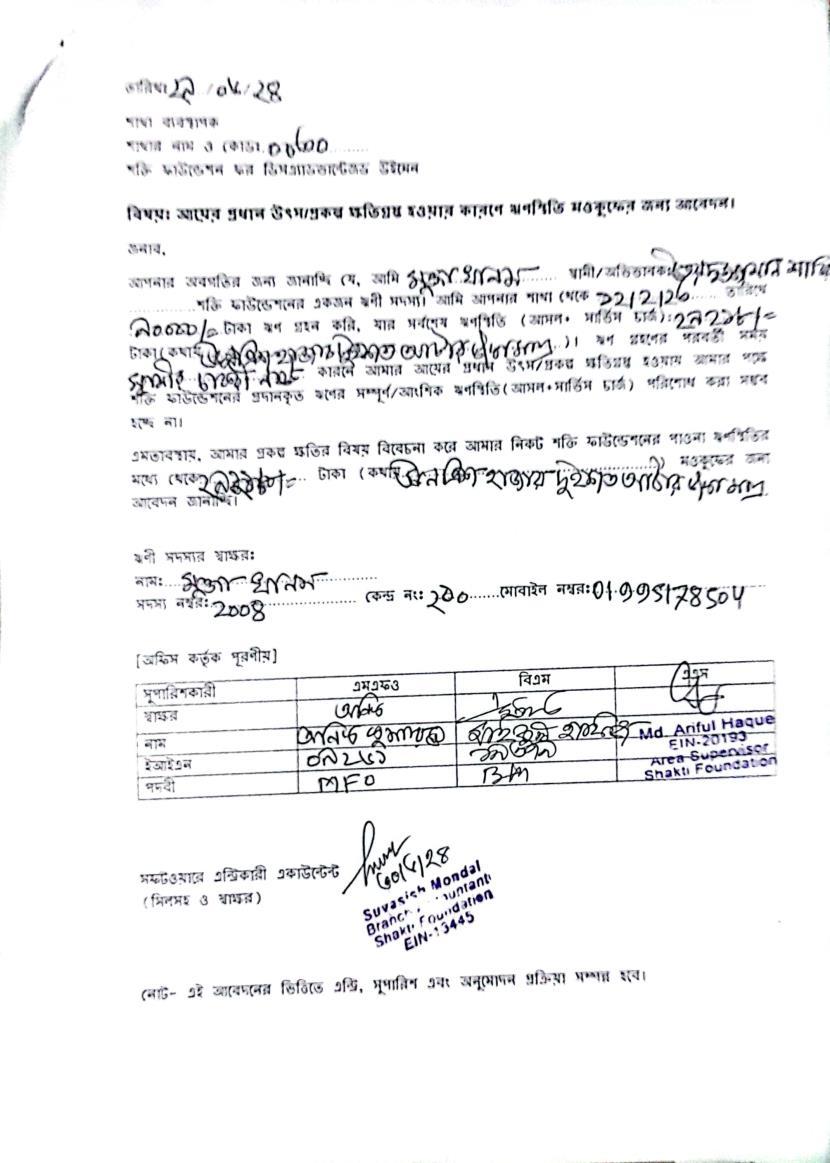 তারিখঃ ২৯/০৫/২৪
শাখা ব্যবস্থাপক
শাখার নাম ও কোডঃ
শক্তি ফাউন্ডেশন ফর ডিসএ্যাডভান্টেজড উইমেন
বিষয়: আয়ের প্রধান উৎস/প্রকল্প ক্ষতিগ্রস্থ হওয়ার কারণে ঋণস্থিতি মওকুফের জন্য আবেদন।
জনাব,
আপনার অবগতির জন্য জানাচ্ছি যে, আমি মুক্তা খানম স্বামী/অভিভাবক
শক্তি ফাউন্ডেশনের একজন ঋণী সদস্য। আমি আপনার শাখা থেকে তারিখে
টাকা ঋণ গ্রহন করি, যার সর্বশেষ ঋণস্থিতি (আসল+ সার্ভিস চার্জ): ২৯২৭৮/=
টাকা (কথায় উনত্রিশ হাজার দুইশত আটাত্তর টাকা মাত্র)। ঋণ গ্রহণের পরবর্তী সময়
স্বামীর চাকরী নাই কারনে আমার আয়ের প্রধান উৎস/প্রকল্প ক্ষতিগ্রস্থ হওয়ায় আমার পক্ষে
শক্তি ফাউন্ডেশনের প্রদানকৃত ঋণের সম্পূর্ণ/আংশিক ঋণস্থিতি(আসল+সার্ভিস চার্জ) পরিশোধ করা সম্ভব
হচ্ছে না।
এমতাবস্থায়, আমার প্রকল্প ক্ষতির বিষয় বিবেচনা করে আমার নিকট শক্তি ফাউন্ডেশনের পাওনা ঋণস্থিতির
মধ্যে থেকে টাকা (কথায় উনত্রিশ হাজার দুইশত আটাত্তর টাকা মাত্র) মওকুফের জন্য
আবেদন জানাচ্ছি।
ঋণী সদস্যর স্বাক্ষর:
নাম: মুক্তা খানম
সদস্য নম্বর: 2008 কেন্দ্র নং: ২৮০ মোবাইল নম্বর: 01995178504
[অফিস কর্তৃক পূরণীয়]
সুপারিশকারী এমএফও বিএম এএস
স্বাক্ষর
নাম Md. Ariful Haque
EIN-20193
ইআইএন Area Supervisor
Shakti Foundation
পদবী MFO BM
সফটওয়ারে এন্ট্রিকারী একাউন্টেন্ট
(সিলসহ ও স্বাক্ষর)
Suvasish Mondal
Branch Accountant
Shakti Foundation
EIN-13445
নোট- এই আবেদনের ভিত্তিতে এন্ট্রি, সুপারিশ এবং অনুমোদন প্রক্রিয়া সম্পন্ন হবে।